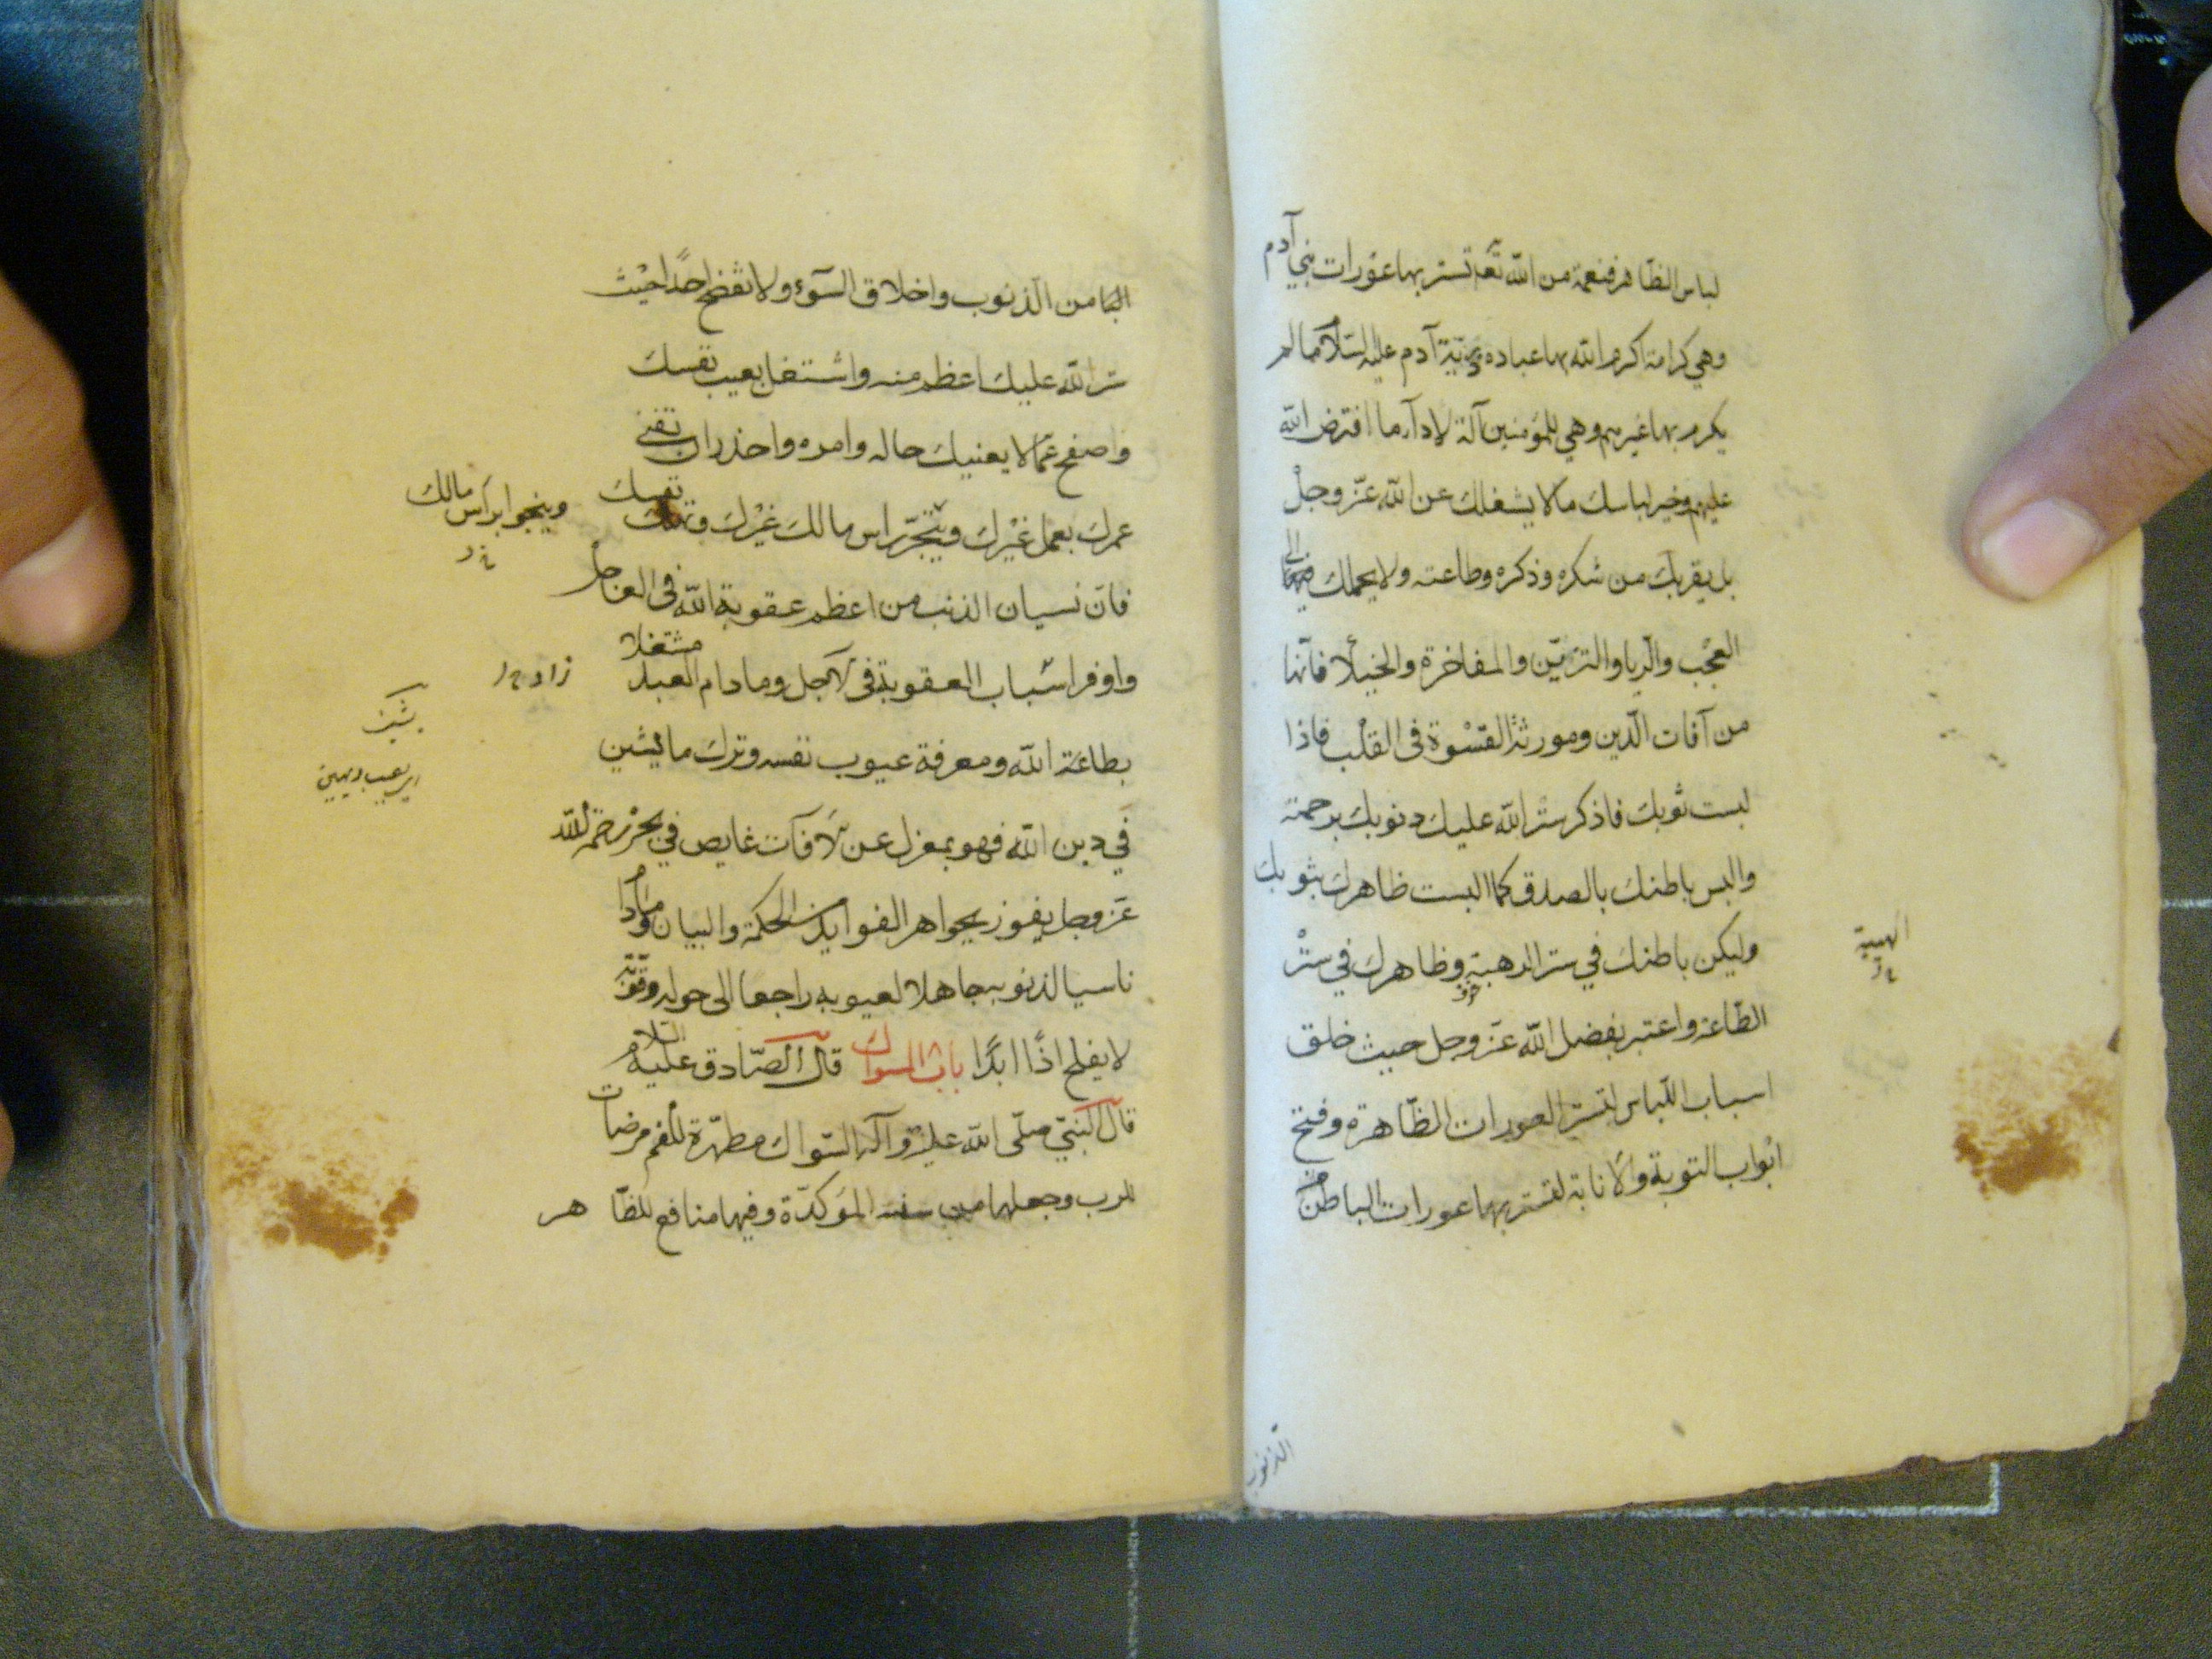 لباس الظاهر فنعمة من الله تعم تستر بها عورات بني آدم
وهي كرامة اكرم الله بها عباده ذرية آدم عليه السلام ما لم
يكرم بها غيرهم وهي للمؤمنين آلة لادآء ما افترض الله
عليهم وخير لباسك ما لا يشغلك عن الله عزّ وجلّ
بل يقربك من شكره وذكره وطاعته ولا يحملك فيها الى
العجب والريا والتزيّن والمفاخرة والخيلأ فانّها
من آفات الدّين ومورثة القسْوة فى القلب فاذا
لبست ثوبك فاذكر ستر الله عليك ذنوبك برحمته
والبس باطنك بالصدق كما البست ظاهرك بثوبك
وليكن باطنك في ستر الرهبة وظاهرك في ستْر
خوف
الهيبة
الطّاعة واعتبر بفضل الله عزّ وجل حيث خلق
اسباب اللّباس لتستر العورات الظّاهرة وفتح
ابْواب التوبة والانابة لتستر بهما عورات الباطن من
الذنوب
الباطن من الذنوب واخلاق السّوء ولا تفضح احدًا حيْث
ستر الله عليك اعظم منه واشتغل بعيب نفسك
واصفح عمّا لا يعنيك حاله وامره واحذر ان تفنى
عمرك بعمل غيْرك ويتّجر براس مالك غيْرك وتهلك نفسك
ويتجر براس مالك
فانّ نسيان الذنب من اعظم عقوبة الله فى العاجل
واوفر اسْباب العقوبة فى الآجل وما دام العبد مشتغلا
بطاعة الله ومعرفة عيوب نفسه وترك ما يشين
في دين الله فهو بمعزل عن الآفات غايص في بحْر رحمة الله
عزّ وجل يفوز بجواهر الفوايد من الحكمة والبيان وما دام
ناسيا لذنوبه جاهلا لعيوبه راجعا الى حوله وقوّته
لا يفلح اذًا ابدًا باب السواك قال الصّادق عليه السّلام
قال النبيّ صلّى الله عليه وآله السّواك مطهّرة للفم مرضات
للرب وجعلها من سنته المؤكدّة وفيها منافع للظّاهر